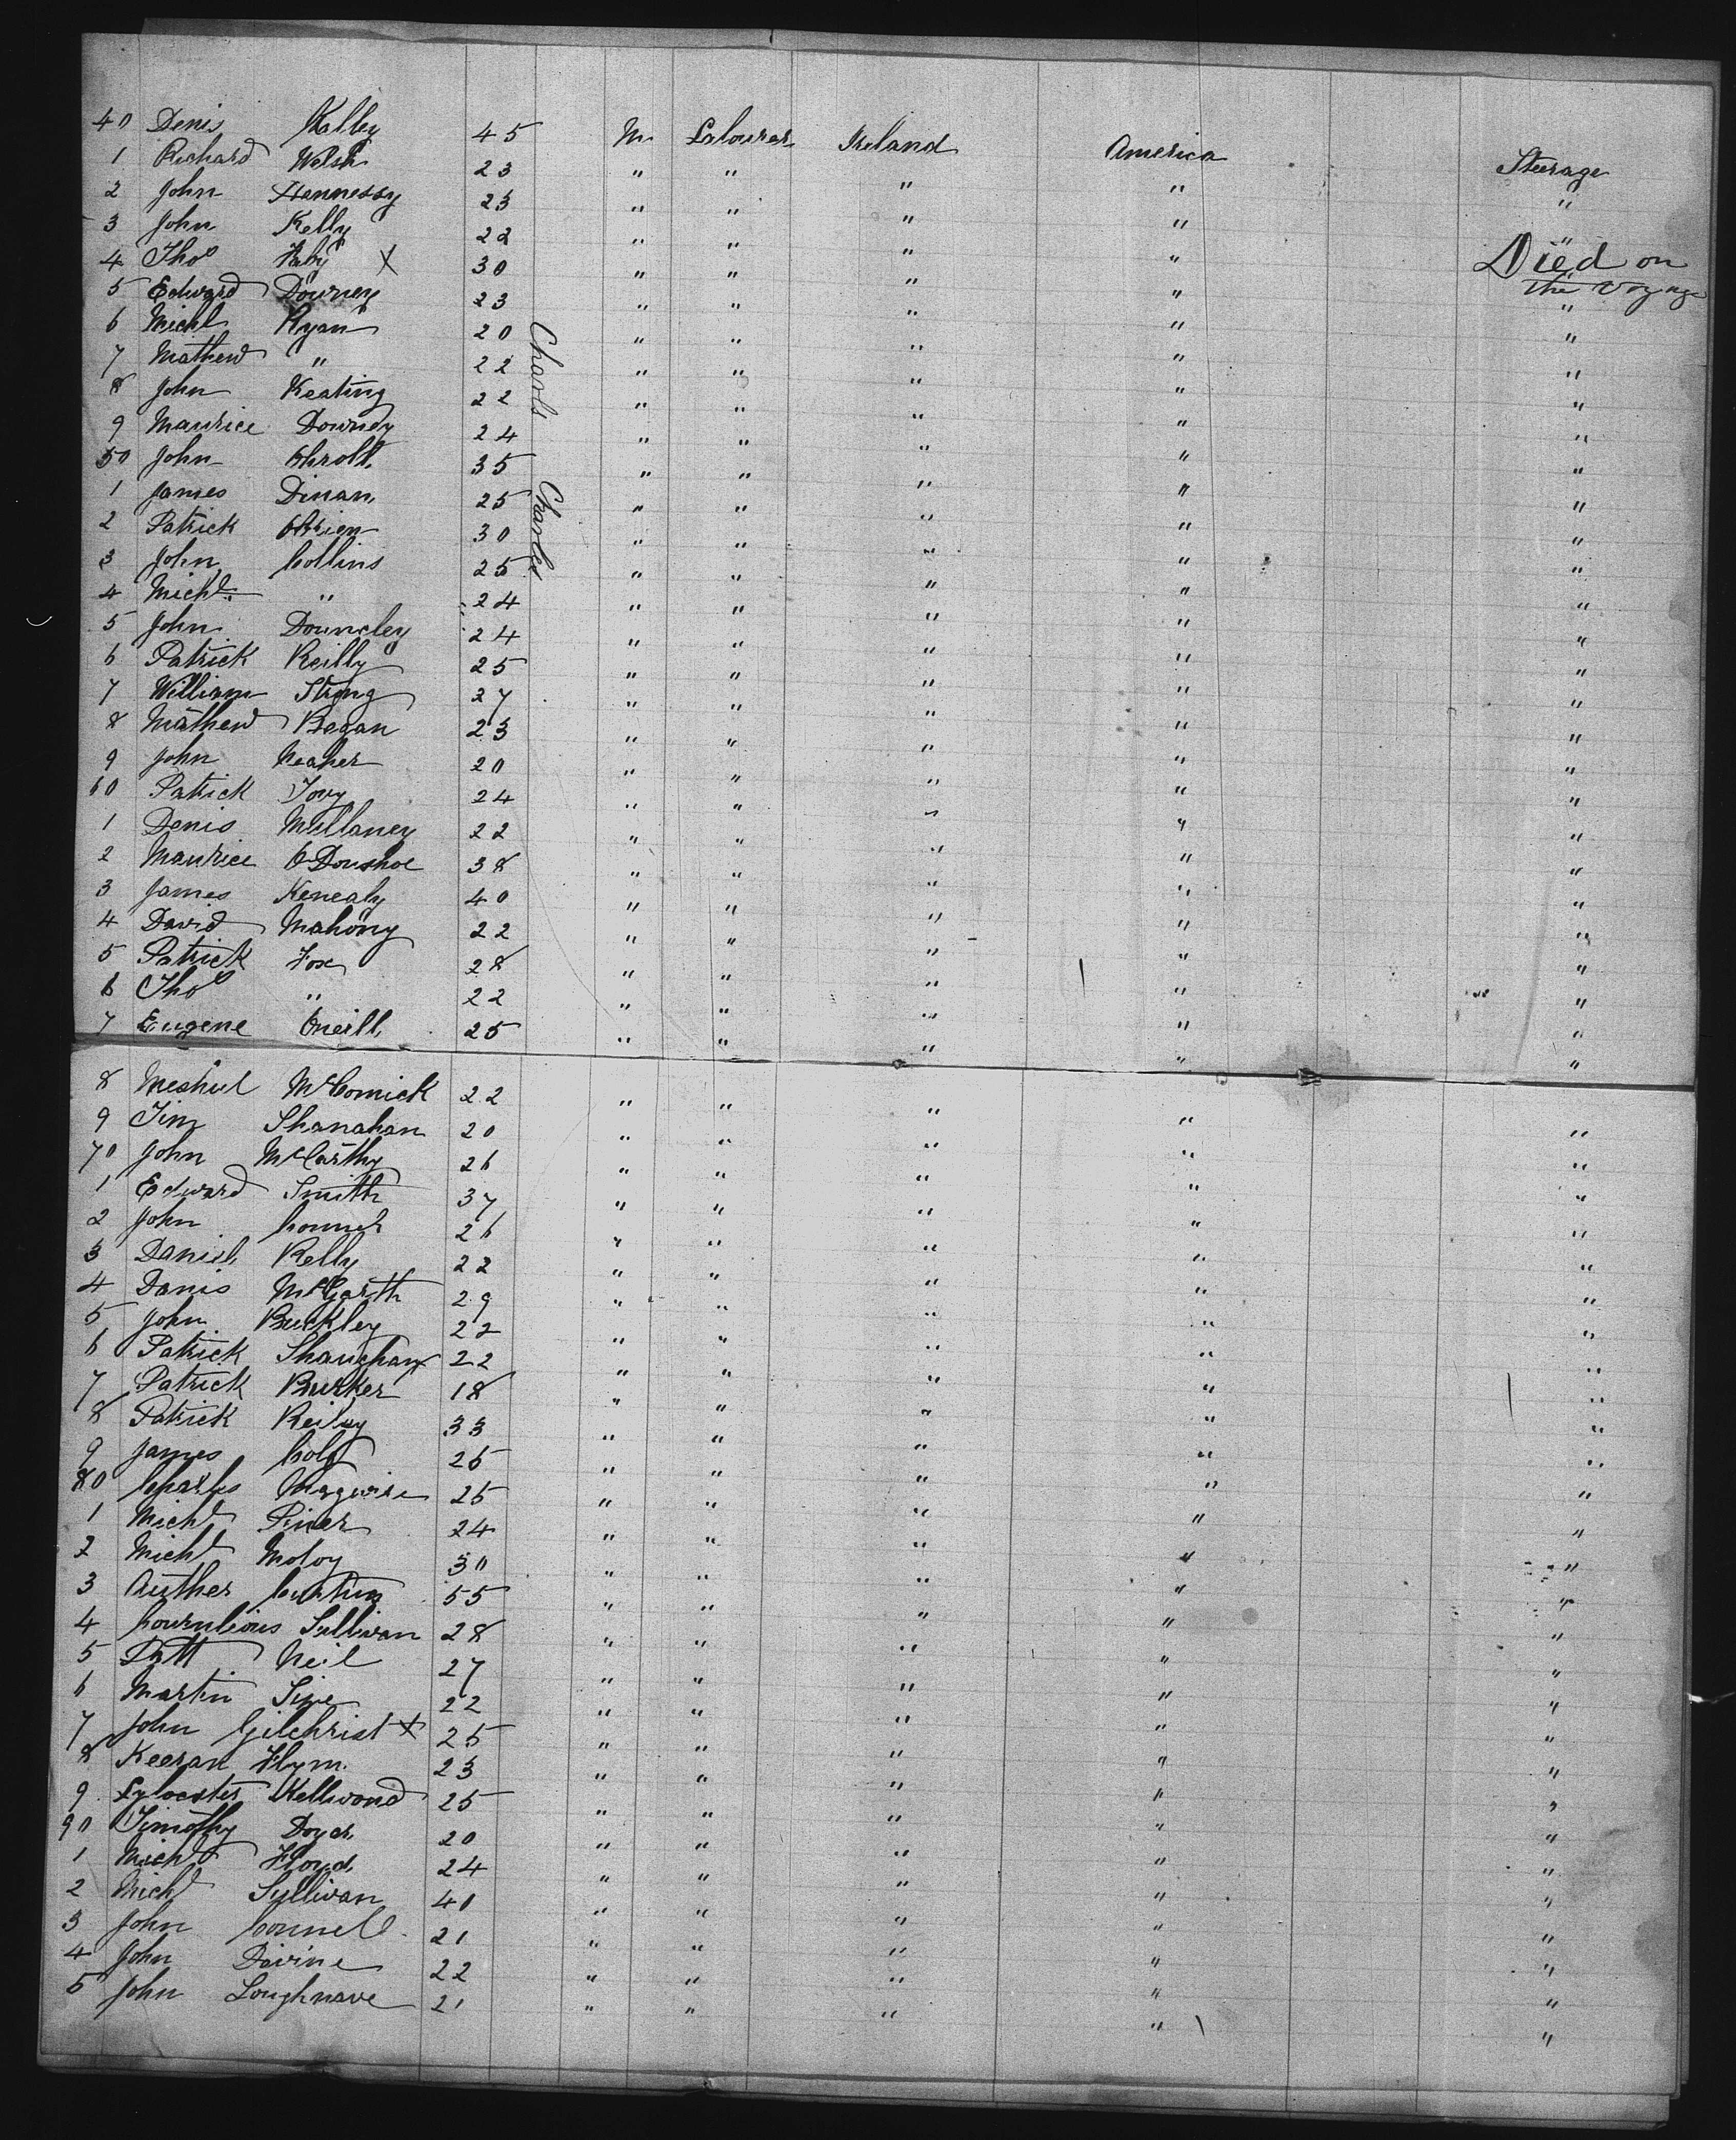 40 Denis Kelley 45 M Labourer Ireland America Steerage
1 Richard Welsh 23 " " " " "
2 John Hennessy 23 " " " " "
3 John Kelly 22 " " " " "
4 Thos X 30 " " " " Died on the voyage
5 Edward Downey 23 " " " " "
6 Michl Ryan 20 " " " " "
7 Mathew " 22 " " " " "
8 John Keating 22 " " " " "
9 Maurice Downey 24 " " " " "
50 John 35 " " " " "
1 James Dinan 25 " " " " "
2 Patrick OBrien 30 " " " " "
3 John Collins 25 " " " " "
4 Michl " 24 " " " " "
5 John 24 " " " " "
6 Patrick Reilly 25 " " " " "
7 William Strong 27 " " " " "
8 Mathew Began 23 " " " " "
9 John Meaher 20 " " " " "
60 Patrick 24 " " " " "
1 Denis Mullaney 22 " " " " "
2 Maurice ODonshoe 38 " " " " "
3 James Kenealy 40 " " " " "
4 David Mahony 22 " " " " "
5 Patrick Fox 28 " " " " "
6 Thos " 22 " " " " "
7 Eugene Oneill 25 " " " " "
Charls Charles
8 McComick 22 " " " " "
9 Tim Shanahan 20 " " " " "
70 John McCarthy 26 " " " " "
1 Edward Smith 37 " " " " "
2 John 26 " " " " "
3 Daniel Kelly 22 " " " " "
4 Danis McGarth 29 " " " " "
5 John Buckley 22 " " " " "
6 Patrick 22 " " " " "
7 Patrick Burker 18 " " " " "
8 Patrick Reiley 33 " " " " "
9 James 25 " " " " "
80 Charles Maguire 25 " " " " "
1 Michl 24 " " " " "
2 Michl Moloy 30 " " " " "
3 Auther 55 " " " " "
4 Sullivan 28 " " " " "
5 Patt Neil 27 " " " " "
6 Martin 22 " " " " "
7 John Gilchrist X 25 " " " " "
8 Keeran 23 " " " " "
9 25 " " " " "
90 Timothy 20 " " " " "
1 Michl Floyd 24 " " " " "
2 Michl Sullivan 40 " " " " "
3 John Connell 21 " " " " "
4 John Divine 22 " " " " "
5 John Loughnave 21 " " " " "